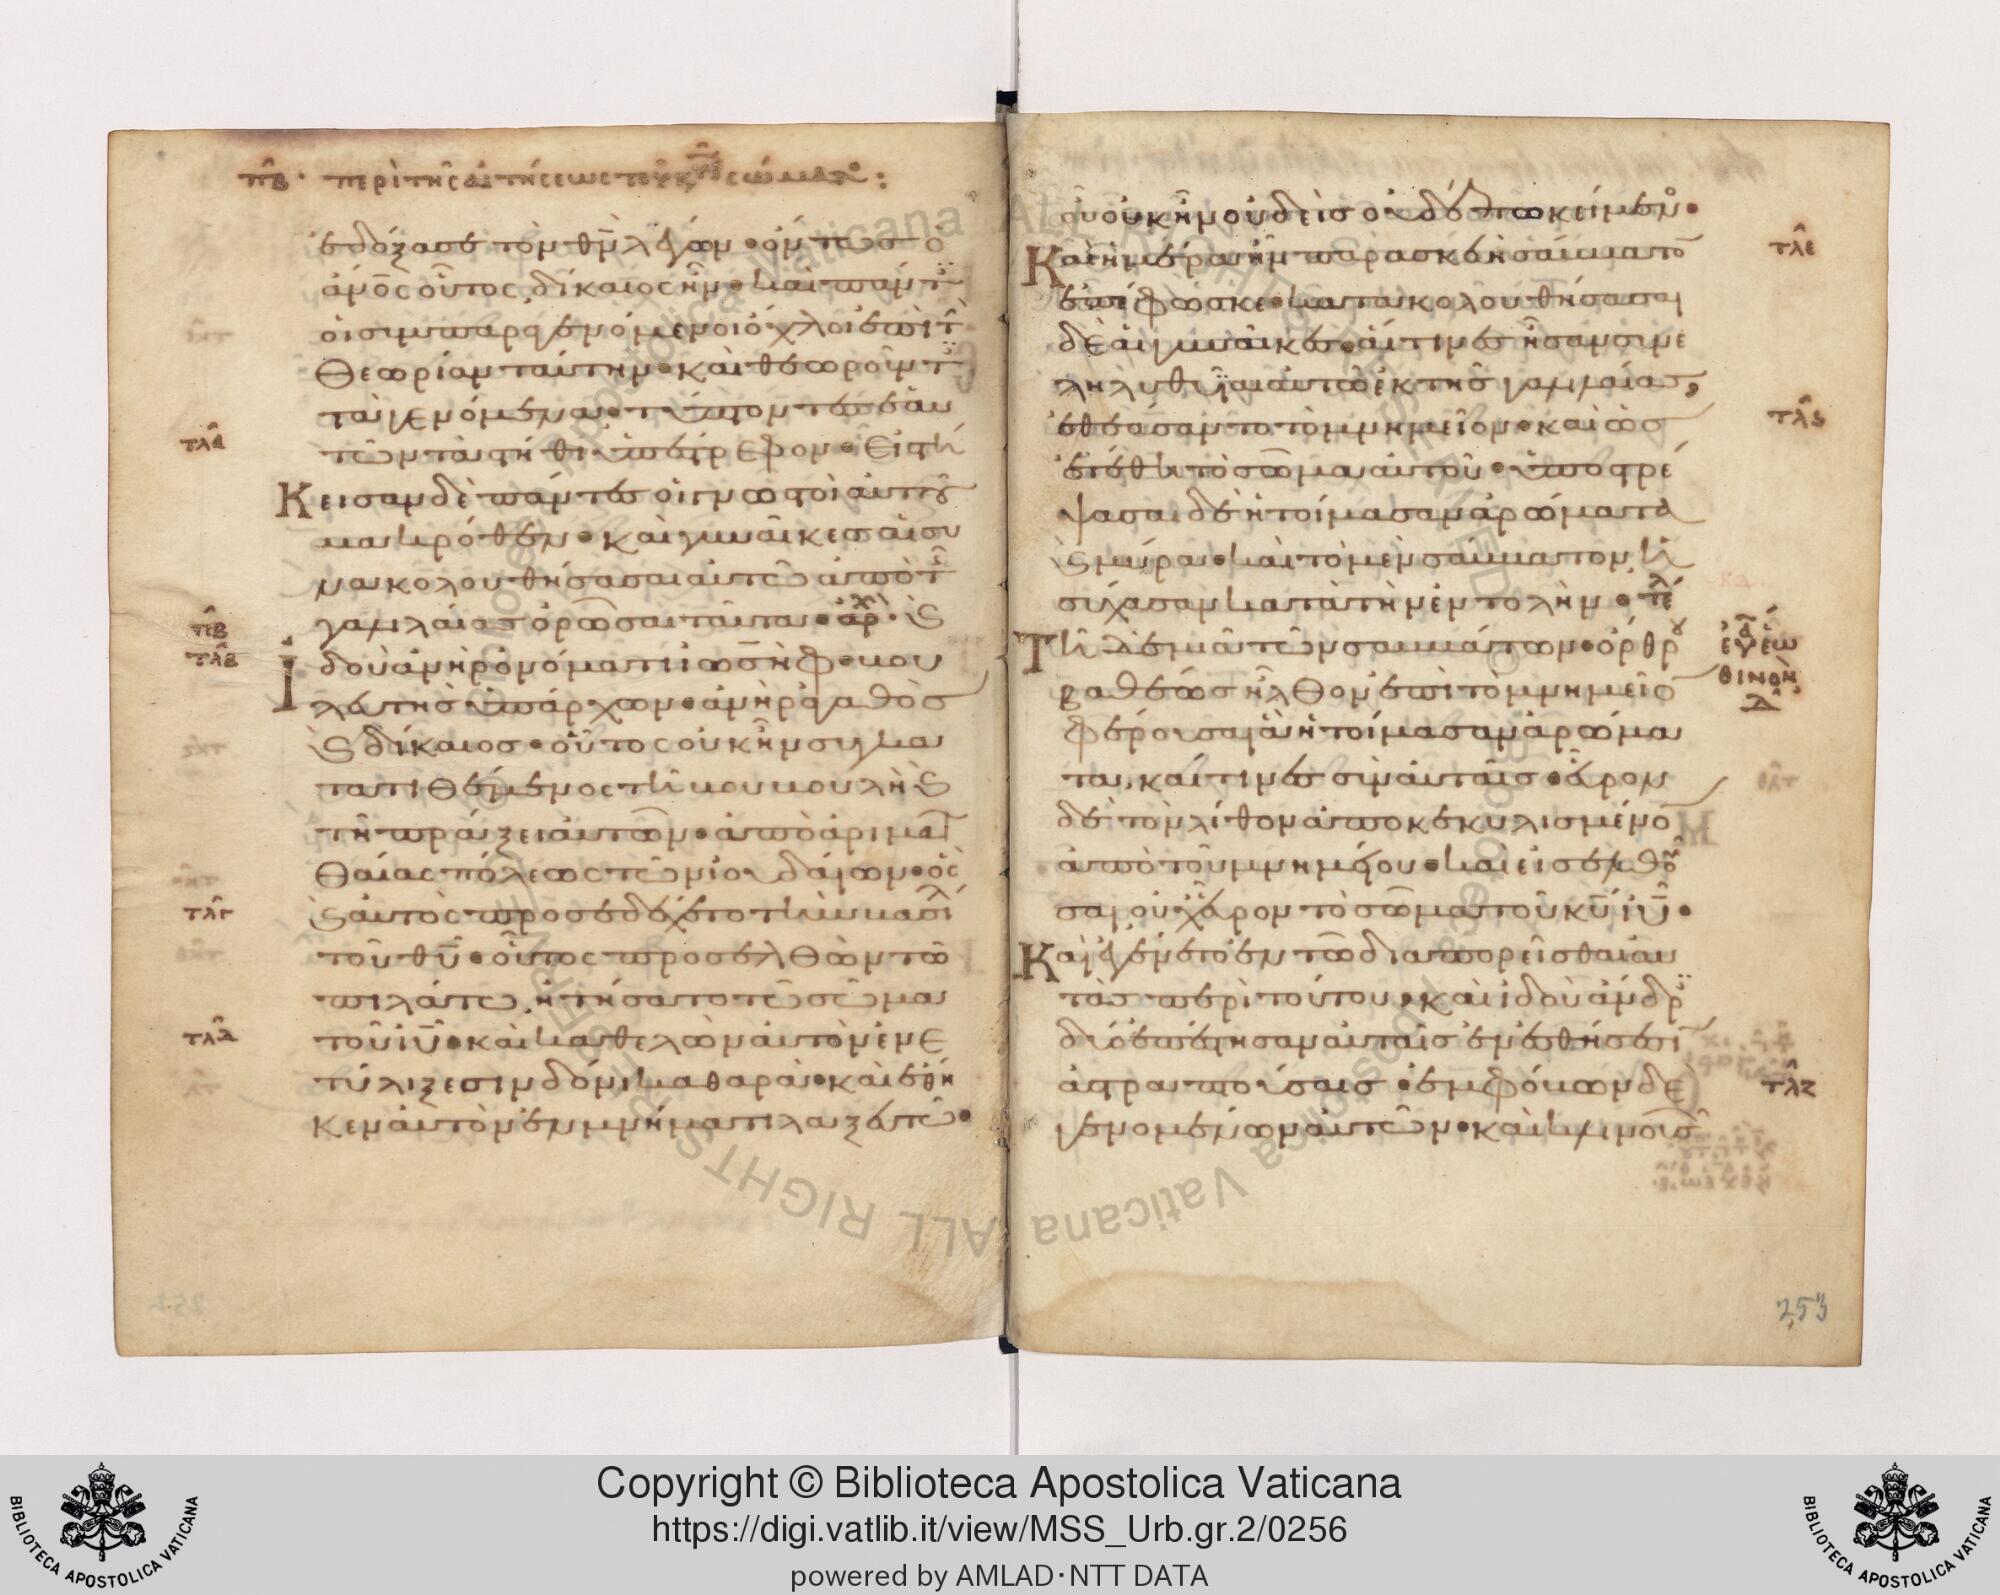 πβ· περὶ τῆς αἰτήσεως τοῦ κυ̅ σώματο:
ἐδόξασε τὸν θν̅ λέγων· ὄντως ὁ
ἄνο̅ς οὗτος, δίκαιος ἦν· καὶ πάντ
οἱ συμπαραγενόμενοι ὄχλοι ἐπὶ τ
θεωρίαν ταύτην· καὶ θεωροῦντ
τὰ γενόμενα· τύπτοντες ἑαυ
τλα
τῶν τὰ στήθη ὑπέστρεφον· Εἱστή
Κεισαν δὲ πάντες οἱ γνωστοὶ αὐτοῦ
μακρόθεν· καὶ γυναῖκες αἱ συ
νακολουθήσασαι αὐτῶ ἀπὸ τ
γαλιλαίας ὁρῶσαι ταῦτα· ἀρχ· Ϗ
πβ
τλβ
Ἰδοὺ ἀνὴρ ὀνόματι ἰωσὴφ· βου
λευτὴς ὑπάρχων· ἀνὴρ ἀγαθὸς
Ϗ δίκαιος· οὗτος οὐκ ἦν συγκα
τατιθέμενος τῆ βουλῆ Ϗ
τῆ πράξει αὐτῶν· ἀπὸ ἀριμα
θαίας πόλεως τῶν ἰουδαίων· ὃς
τλγ
Ϗ αὐτὸς προσεδέχετο τὴν βασιλεί
τοῦ θυ̅· οὗτος προσελθὼν τῶ
πιλάτω, ἠτήσατο τὸ σῶμα
τλδ
τοῦ ιυ̅· καὶ καθελὼν αὐτὸ ἐνε
τύλιξε σινδόνι καθαρᾶ· καὶ ἔθη
κεν αὐτὸ ἐν μνήματι λαξευτῶ·
οὗ οὐκ ἦν οὐδεὶς οὐδέπω κείμενο·
τλε
Καὶ ἡμέρα ἦν παρασκευὴ σάββατο
ἐπέφωσκε· κατακολουθήσασαι
δὲ αἱ γυναῖκες· αἵτινες ἦσαν συνε
ληλυθυῖαι αὐτῶ ἐκ τῆς γαλιλαίας,
τλς
ἐθεάσαντο τὸ μνημεῖον· καὶ ὡς
ἐτέθη τὸ σῶμα αὐτοῦ· ὑποστρέ
ψασαι δὲ ἡτοίμασαν ἀρώματα
Ϗ μύρα· καὶ τὸ μὲν σάββατον, ἡ
σύχασαν κατὰ τὴν ἐντολήν· τέλ
Τῆ δὲ μιᾶ τῶν σαββάτων· ὄρθρου
εὐαγ ἑω
θινὸν
Δ
βαθέως ἦλθον ἐπὶ τὸ μνημεῖο
φέρουσαι ἃ ἡτοίμασαν ἀρώμα
τα, καί τινες σὺν αὐταῖς· εὗρον
δὲ τὸν λίθον ἀποκεκυλισμένο
ἀπὸ τοῦ μνημείου· καὶ εἰσελθοῦ
σαι οὐχ εὗρον τὸ σῶμα τοῦ κυ̅ ιυ̅·
Καὶ ἐγένετο ἐν τῶ διαπορεῖσθαι αὐ
τὰς περὶ τούτου, καὶ ἰδοὺ ἄνδρ
δύο ἐπέστησαν αὐταῖς ἐν ἐσθήσεσι
τλζ
ἀστραπτούσαις· ἐμφόβων δὲ
γενομένων αὐτῶν· καὶ κλινουσῶ
253
Copyright © Biblioteca Apostolica Vaticana
https://digi.vatlib.it/view/MSS_Urb.gr.2/0256
powered by AMLAD·NTT DATA
BIBLIOTECA APOSTOLICA VATICANA
BIBLIOTECA APOSTOLICA VATICANA